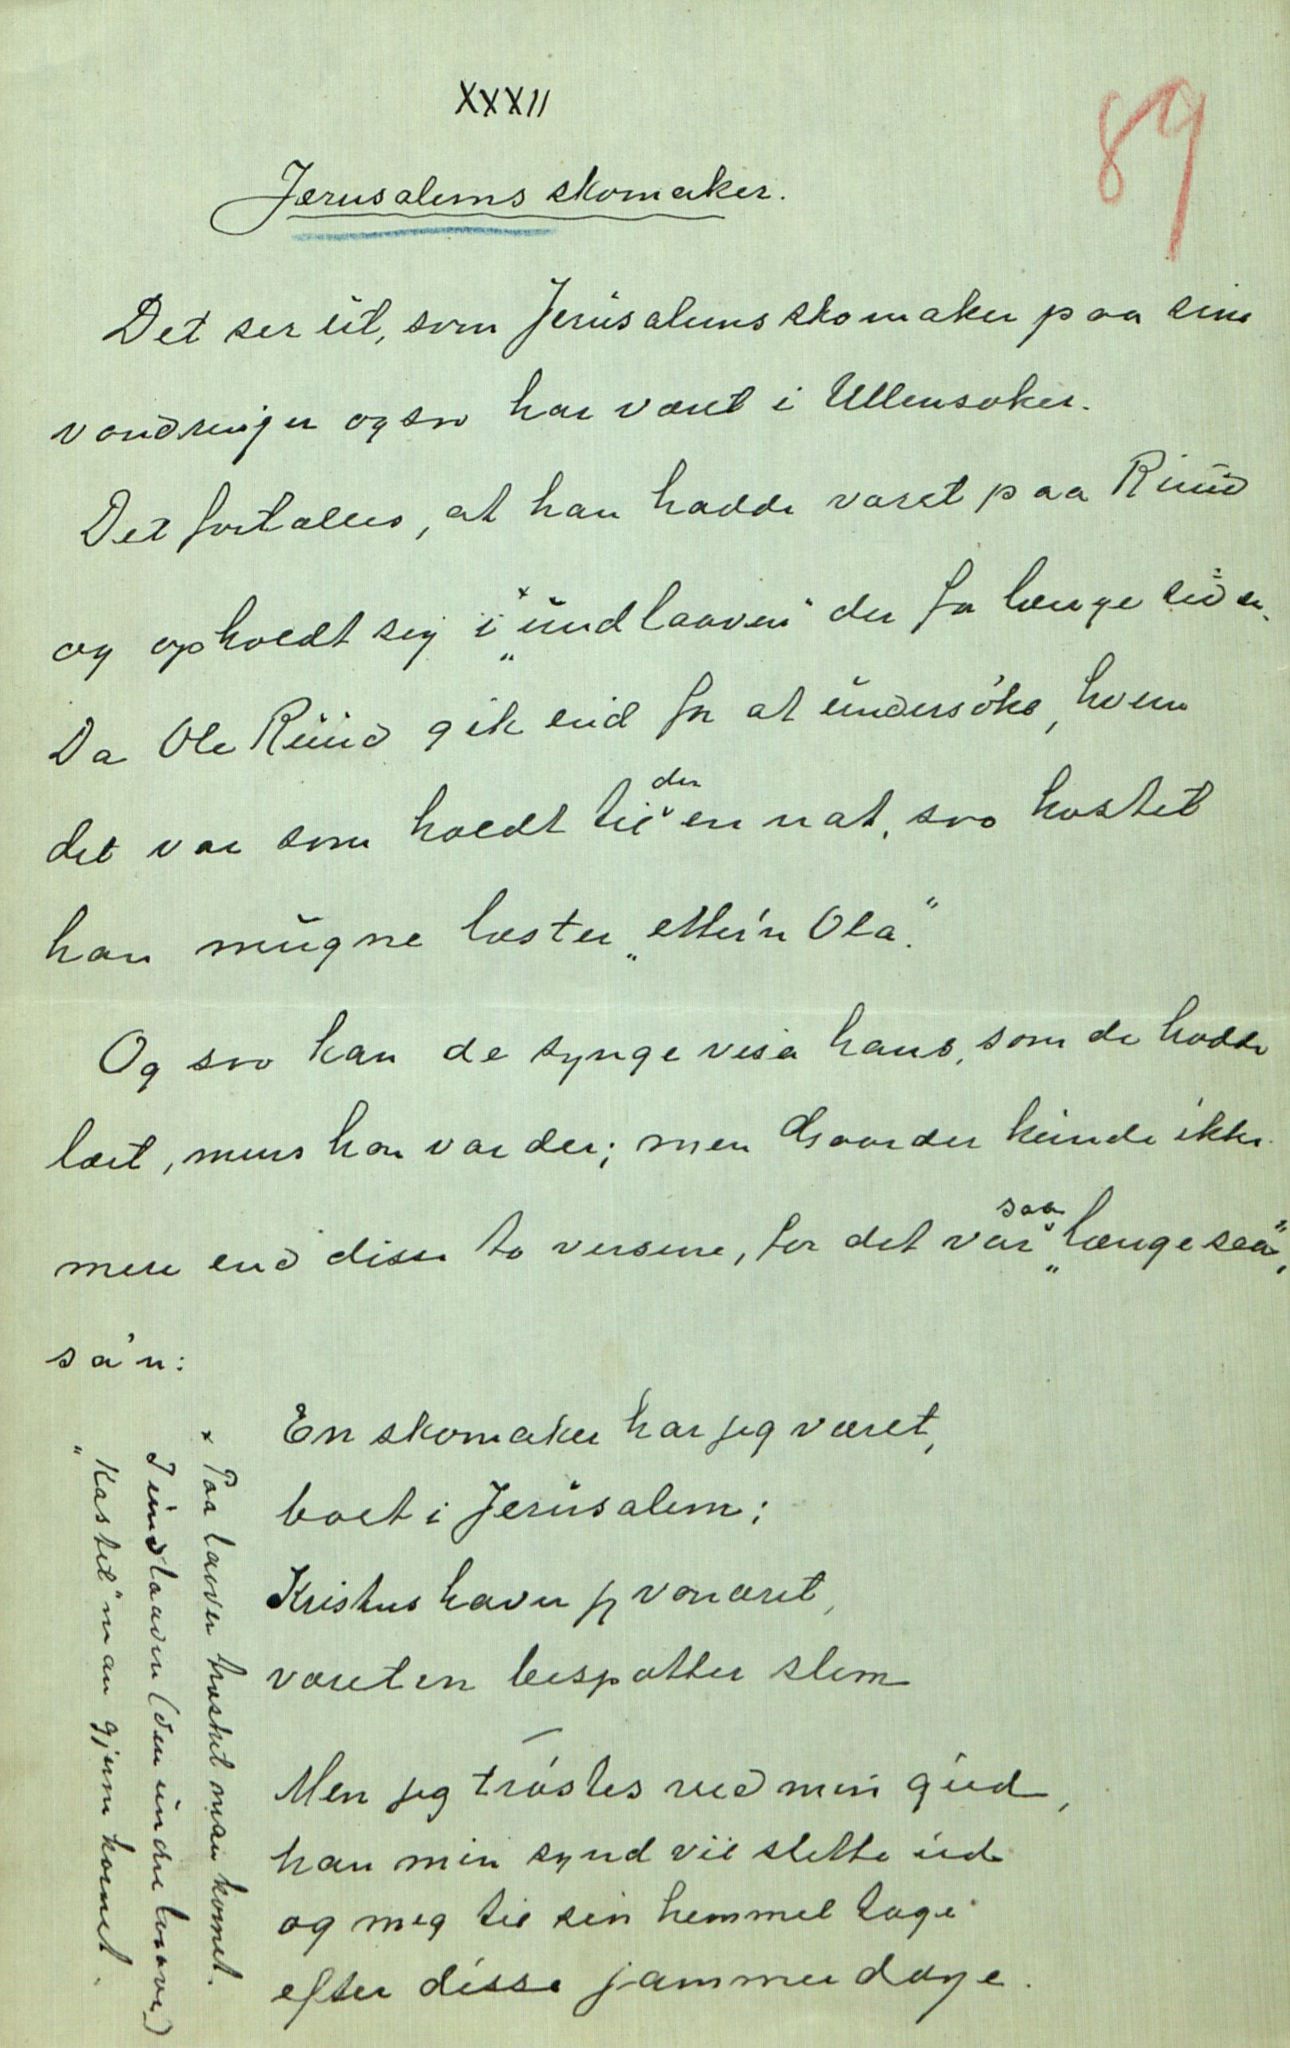 XXXII
89
Jerusalems skomaker.
Det ser ut, som Jerusalems skomaker paa sine
vandringer ogsaa har været i Ullensaker.
Det fortælles, at han hadde været paa Ruud
og opholdt sig i x „undlaaven“ der for længe siden.
Da Ole Ruud gik eind for at undersøke, hvem
det var som holdt til der en nat, saa kastet
han mugne læster „etter'n Ola“.
Og saa kan de synge visa hans, som de hadde
lært, mens han var der; men Gaarder kunde ikke
mere end disse to versene, for det var saa „længe saa“,
så'n:
En skomaker har jeg været,
boet i Jerusalem;
Kristus haver jeg vanæret,
været en bespotter slem
Men jeg trøstes ved min gud,
han min synd vil slette ud
og meg til sin himmel tage
efter disse jammerdage.
x Paa laaven træsket man kornet.
I undlaaven (den undre laave)
„Kastet“ man gjerne kornet.